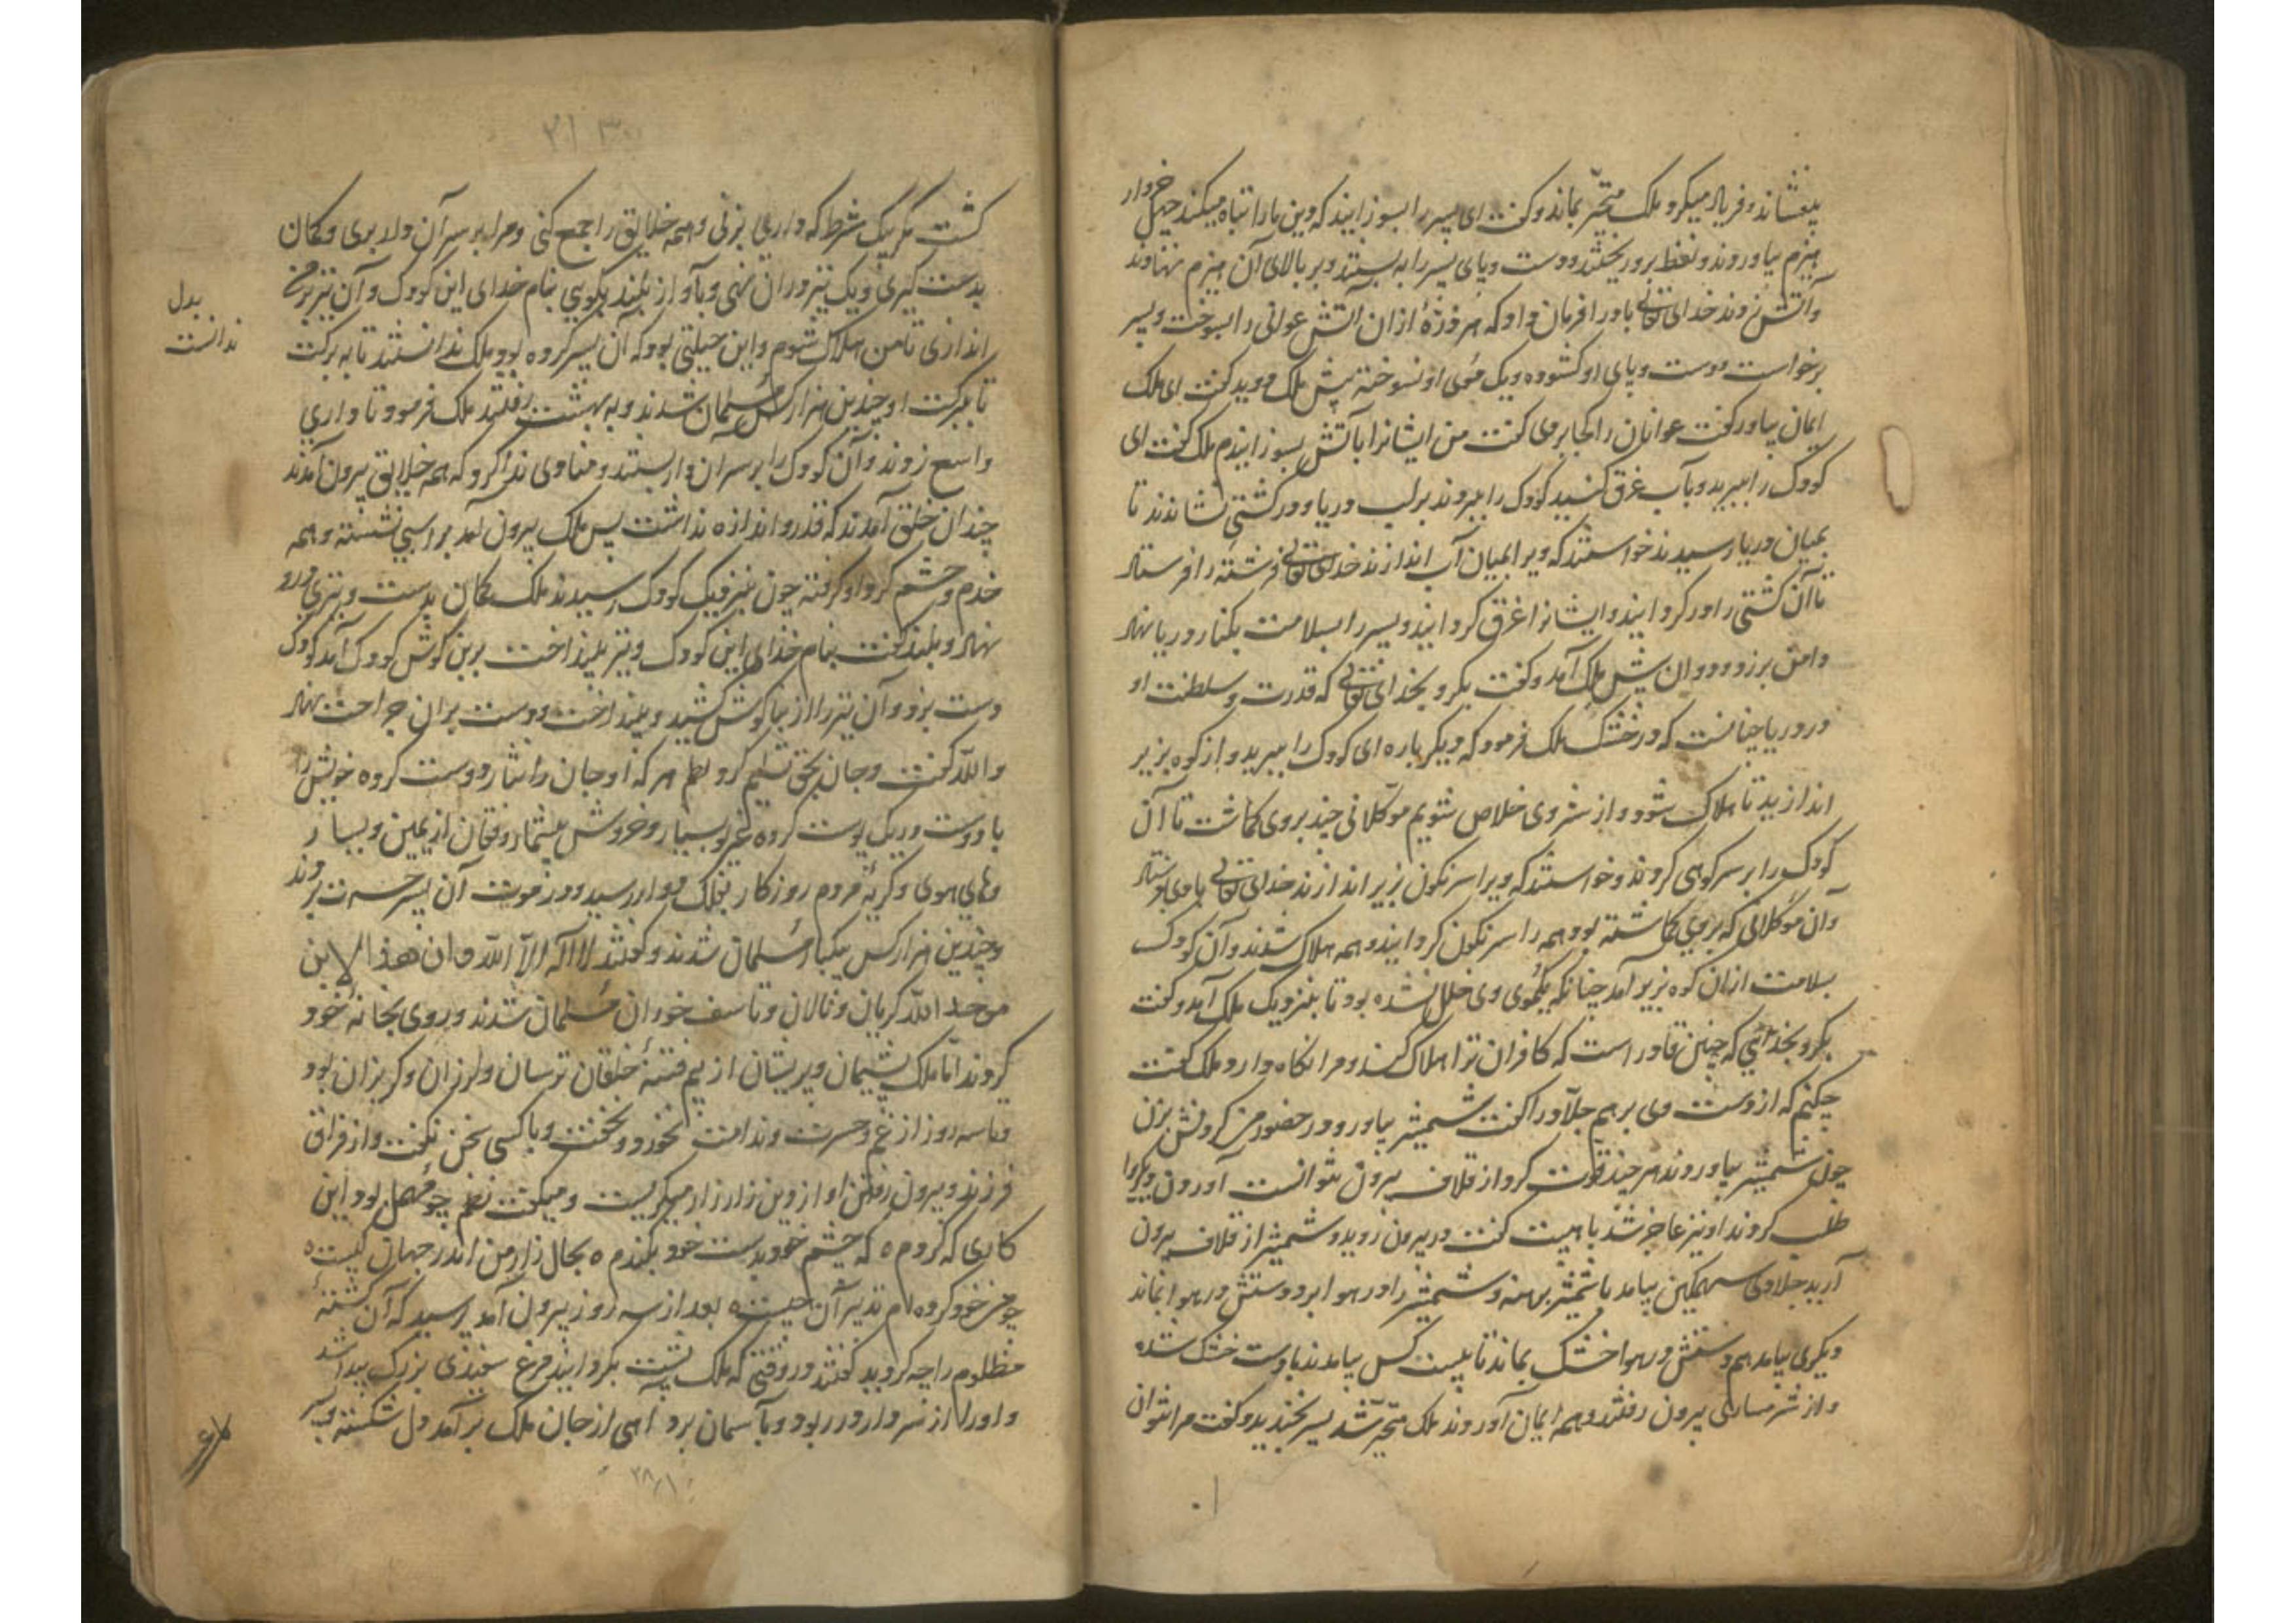 بنشاند و فریاد میکرد ملک متحیّر بماند و گفت ای پسر را بسوزانید که دین ما را تباه میکند چهل خروار
هیزم بیاوردند و نفط برو ریختند و دست و پای پسر را به بستند و بر بالای آن هیزم نهادند
و آتش زدند خدای تعالی باد را فرمان داد که هر ذرّهٔ از ان آتش عوانی را بسوخت و پسر
برخواست دست و پای او کشوده و یک موی او نسوخته پیش ملک دوید گفت ای ملک
ایمان بیاور گفت عوانان را کجا بردی گفت من ایشانرا باآتش بسوزانیدم ملک گفت ای
کودک را ببرید و بآب غرق کنید کودک را ببردند بر لب دریا و در کشتی نشاندند تا
بمیان دریا رسیدند خواستند که ویرا بمیان آب اندازند خدای تعالی فرشته را فرستاد
تا آن کشتی را در کردانید و ایشانرا غرق کردانید و پسر را بسلامت بکنار دریا نهاد
دامن بر زد و دوان پیش ملک آمد و گفت بکرو بخدای تعالی که قدرت و سلطنت او
در دریا چنانست که در خشک ملک فرمود که دیکر باره ای کودک را ببرید و از کوه بزیر
اندازید تا هلاک شود و از شر وی خلاص شویم موکلانی چند بروی کماشت تا آن
کودک را بر سر کوهی کردند و خواستند که ویرا سرنکون بزیر اندازند خدای تعالی بادی فرستاد
و آن موکلانی که بروی کماشته بود همه را سرنکون کردانید و همه هلاک شدند و آن کودک
بسلامت از ان کوه بزیر آمد چنانکه یکموی وی خلل نشده بود تا بنزدیک ملک آمد و گفت
بکرو بخدائی که چنین قادر است که کافران ترا هلاک کند و مرا نکاه دارد ملک گفت
چکنم که از دست وی برهم جلّاد را گفت شمشیر بیاور و در حضور من کردنش بزن
چون شمشیر بیاوردند هر چند قوّت کرد از غلاف بیرون نتوانست آوردن دیکر را
طلب کردند او نیز عاجز شد با هیبت گفت در بیرون روید و شمشیر از غلاف بیرون
آرید جلادی سهمکین بیامد با شمشیر برهنه و شمشیر را در هوا برد و دستش در هوا بماند
دیکری بیامد هم دستش در هوا خشک بماند تا بیست کس بیامدند با دست خشک شده
و از شرمساری بیرون رفتند و همه ایمان آوردند ملک متحیّر شد پسر بخندید و گفت مرا نتوان
۲۱۳۰
کشت مکر بیک شرط که داری بزنی و همه خلایق را جمع کنی و مرا بر سر آن دار بری و کمان
بدست کیری و یک تیر در ان نهی و بآواز بلند بکویی بنام خدای این کودک و آن تیر بر من
اندازی تا من هلاک شوم و این حیلتی بود که آن پسر کرده بود ملک ندانستند تا به برکت
بدل
ندانست
تا ببرکت او چندین هزار کس مسلمان شدند و به بهشت رفتند ملک فرمود تا داری
واسع زدند و آن کودک را بر سر ان دار بستند و منادی ندا کرد که همه خلایق بیرون آمدند
چندان خلق آمدند که قدر و اندازه نداشت پس ملک بیرون آمد بر اسبی نشسته و همه
خدم و حشم کرد او کرفته چون بنزدیک کودک رسیدند ملک کمان بدست و تیری در و
نهاد و بلند گفت بنام خدای این کودک و تیر بینداخت بر بن کوش کودک آمد کودک
دست بزد و آن تیر را از بناکوش کشید و بینداخت و دست بر ان جراحت نهاد
و اللّه گفت و جان بحق تسلیم کرد نظم هر که او جان را نثار دوست کرده خویش را
با دوست در یک پوست کرده غریو بسیار و خروش بیشمار و فغان از یمین و یسار
و های هوی و کریهٔ مردم روزکار بفلک دوار رسید و در موت آن پسر حسرت بردند
و چندین هزار کس بیکبار مسلمان شدند و کفتند لا اله الا اللّه و ان هذا الابن
من عند اللّه کریان و نالان و تاسف خوران مسلمان شدند و روی بخانهٔ خود
کردند امّا ملک پشیمان و پریشان از بیم فتنهٔ خلقان ترسان و لرزان و کریزان بود
و تا سه روز از غم و حسرت و ندامت نخورد و نخفت و با کسی سخن نکفت و از فراق
فرزند و بیرون رفتن او از دین زار زار میکریست و میکفت نظم چو فعل بود این
کاری که کردم ه که چشم خود بدست خود بکندم ه بحال زار من اندر جهان کیست ه
چو من خود کرده ام تدبیر آن چیست ه بعد از سه روز بیرون آمد پرسید که آن کشتهٔ
مظلوم را چه کردید کفتند در وقتی که ملک پشت بکردانید مرغ سفیدی بزرک پیدا شد
و او را از سر دار در ربود و بآسمان برد آهی از جان ملک بر آمد دل شکسته و پیر
۲۸۱